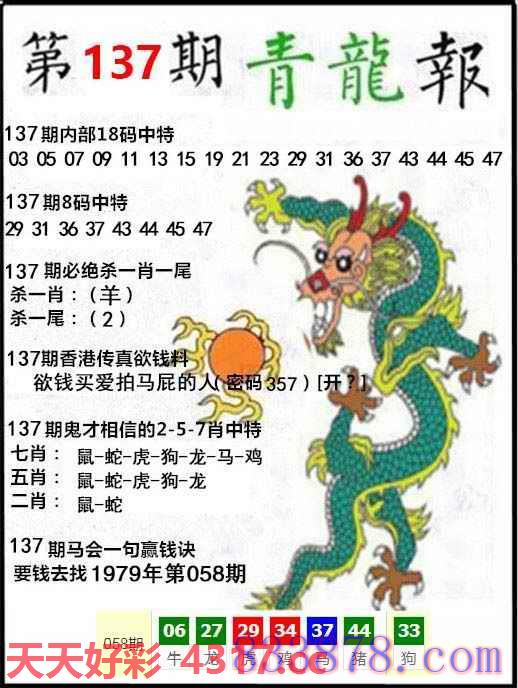 第137期青龍報
137期内部18码中特
03 05 07 09 11 13 15 19 21 23 29 31 36 37 43 44 45 47
137期8码中特
29 31 36 37 43 44 45 47
137期必绝杀一肖一尾
杀一肖：（羊）
杀一尾：（2）
137期香港传真欲钱料
欲钱买爱拍马屁的人(密码357)[开?]
137期鬼才相信的2-5-7肖中特
七肖：鼠-蛇-虎-狗-龙-马-鸡
五肖：鼠-蛇-虎-狗-龙
二肖：鼠-蛇
137期马会一句赢钱诀
要钱去找1979年第058期
058期 06 27 29 34 37 44 33
牛 龙 虎 鸡 马 猪 狗
天天好彩 4317.cc